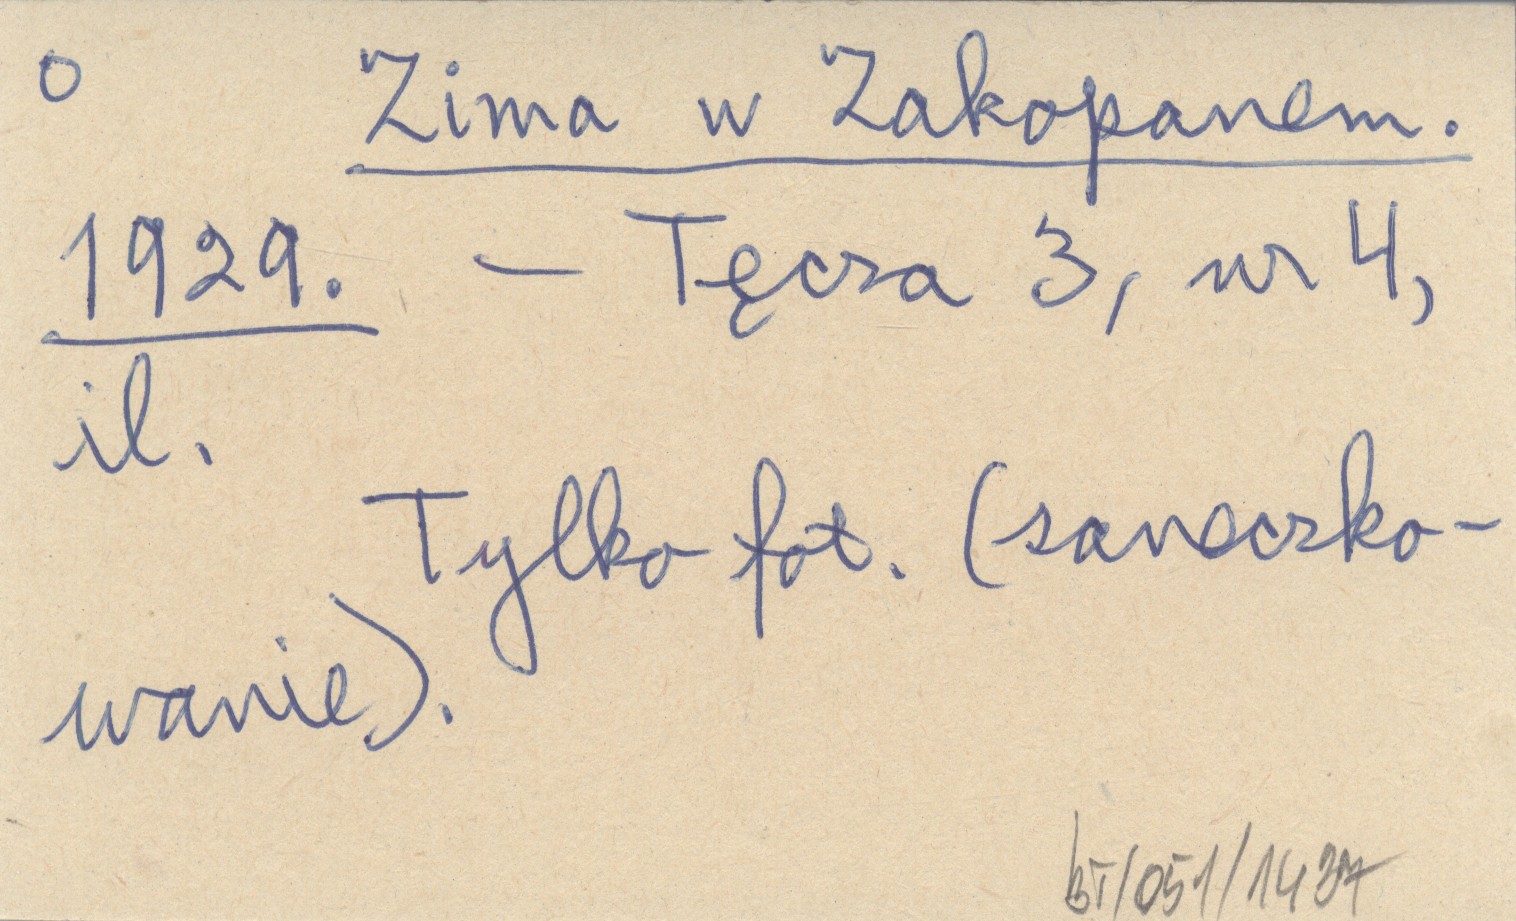 o Zima w Zakopanem.
1929. – Tęcza 3, nr 4,
il.
Tylko fot. (saneczko-
wanie).
bT/051/1437